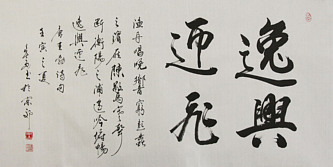 逸興
遄飛
漁舟唱晚響窮彭蠡
之濱雁陣驚寒聲
斷衡陽之浦遥吟俯暢
逸興遄飛
唐王勃詩句
壬寅之夏
書於京郊